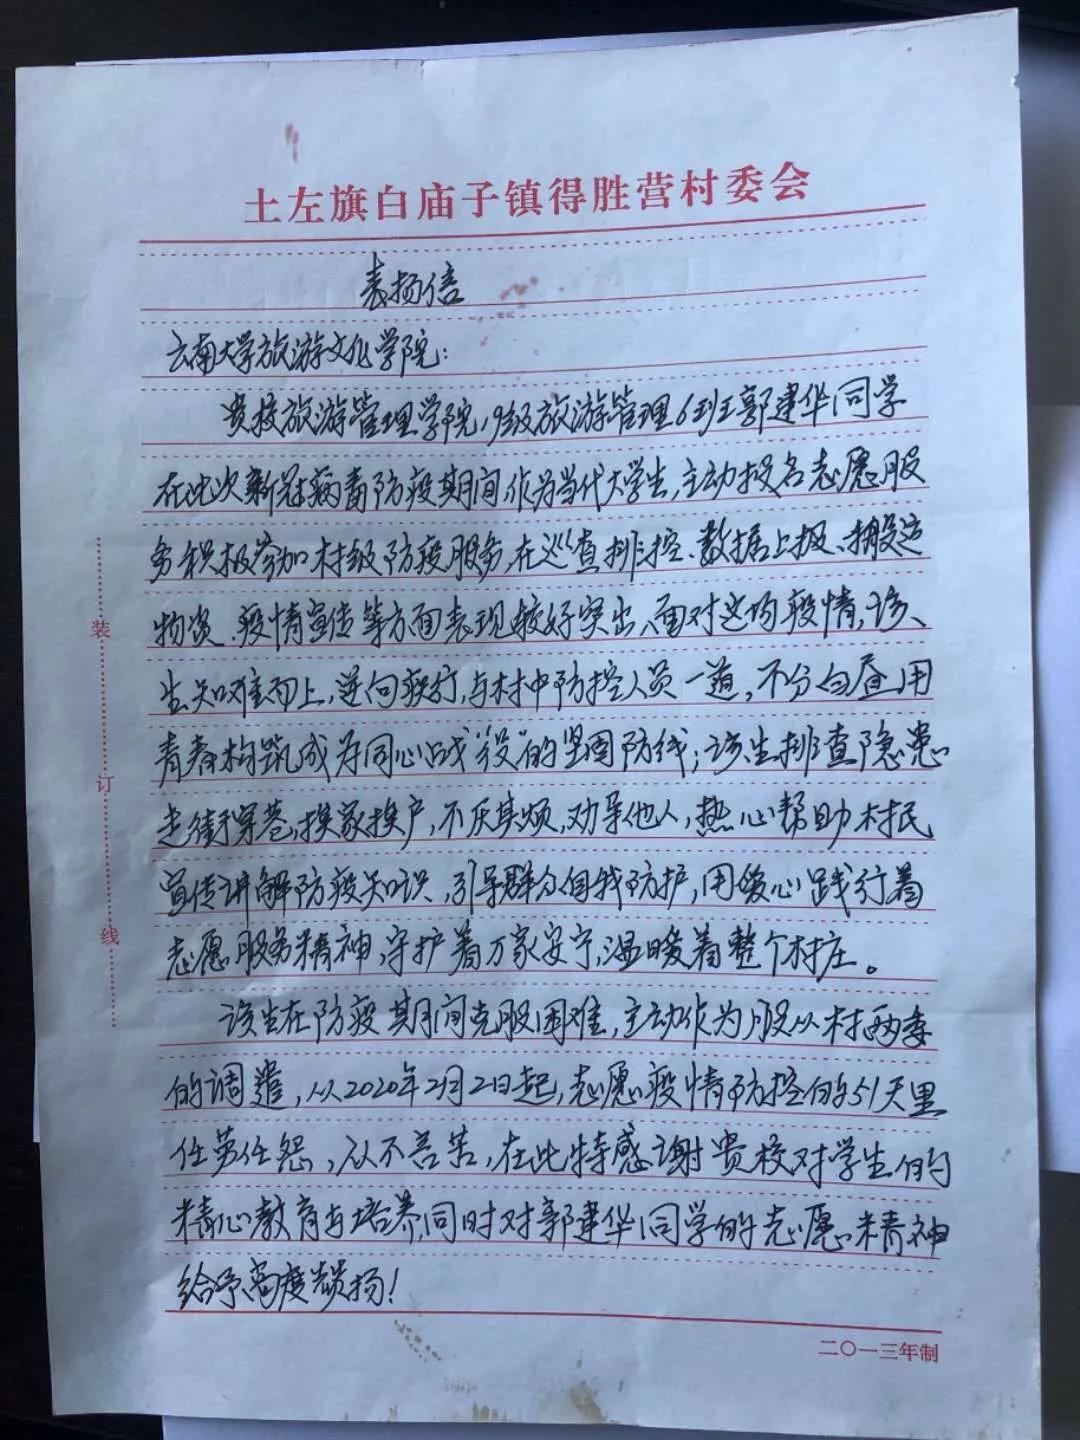 土左旗白庙子镇得胜营村委会
表扬信
云南大学旅游文化学院:
贵校旅游管理学院19级旅游管理6班郭建华同学
在此次新冠病毒防疫期间,作为当代大学生,主动报名志愿服
务积极参加村级防疫服务,在巡查排控、数据上报、搬运
物资、疫情宣传等方面表现较好突出、面对这场疫情,该
生知难而上,逆向疾行,与村中防控人员一道,不分白昼用
青春构筑成为同心战"役"的坚固防线;该生排查隐患
走街穿巷,挨家挨户,不厌其烦,劝导他人,热心帮助村民
宣传讲解防疫知识,引导群众自我防护,用爱心践行着
志愿服务精神,守护着万家安宁,温暖着整个村庄。
该生在防疫期间克服困难,主动作为服从村两委
的调遣,从2020年2月2日起,志愿疫情防控的51天里
任劳任怨,从不言苦,在此特感谢贵校对学生的
精心教育与培养,同时对郭建华同学的志愿精神
给予高度赞扬!
二〇一三年制
装
订
线